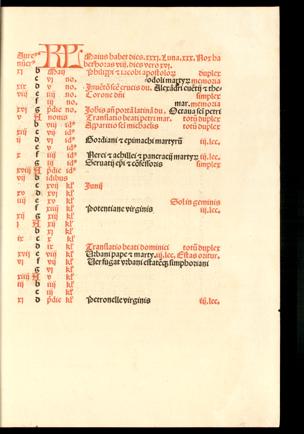 Aure⁹ KL Maius habet dies. xxxj. Luna. xxx. Nox ha
nüer⁹ bet horas viij. dies vero xvj.
xj b Maij Philippi et iacobi apostoloꝝ duplex
c vj no. odolij martyr memoria
xix d v no. Inuētiōscē crucis du. Alexādri euētij et the⸗
viij e iiij no. Corone dñi mar. memoria
f iij no.
xvj g ij no. Johis añ portā latinā du. Octaua sci petri
v A nonis Translatio beati petri mar. totū duplex
b viij id⁹ Apparitio sci michaelis totū duplex
c vij id⁹
ij d vj id⁹ Gordiani et epimachi martyrū iij. lec.
e v id⁹
x f iiij id⁹ Nerei et achillei et pancracij martyrꝝ iij. lec.
g iij id⁹ Seruatij epi et cōfessoris simplex
xviij A pdie id⁹
vij b idibus
c xvij kl' Junij
xv d xvj kl'
iiij e xv kl' Sol in geminis
f xiiij kl' Potentiane virginis iij. lec.
xij g xiij kl'
j A xij kl'
b xj kl'
ix c x kl'
d ix kl' Translatio beati dominici totū duplex
xvij e viij kl' Urbani pape et marty. iij. lec. Estas oritur.
vj f vij kl' Ver fugat vrbani estatēqꝫ simphoriani
g vj kl'
xiiij A v kl'
iij b iiij kl'
c iij kl'
xj d pdie kl' Petronelle virginis iij. lec.